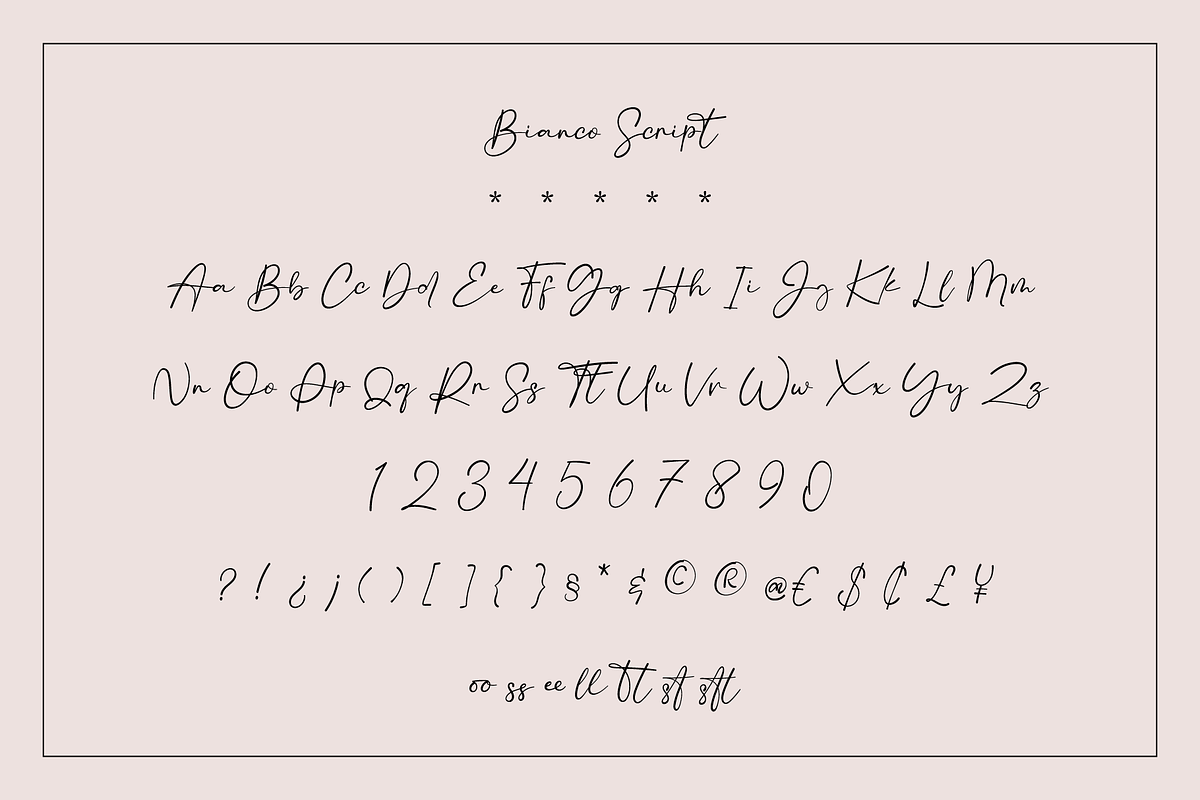 Bianco Script
* * * * *
Aa Bb Cc Dd Ee Ff Gg Hh Ii Jj Kk Ll Mm
Nn Oo Pp Qq Rr Ss Tt Uu Vv Ww Xx Yy Zz
1 2 3 4 5 6 7 8 9 0
? ! ¿ ¡ ( ) [ ] { } § * & © ® @ € $ ₵ £ ¥
oo ss ee ll tt